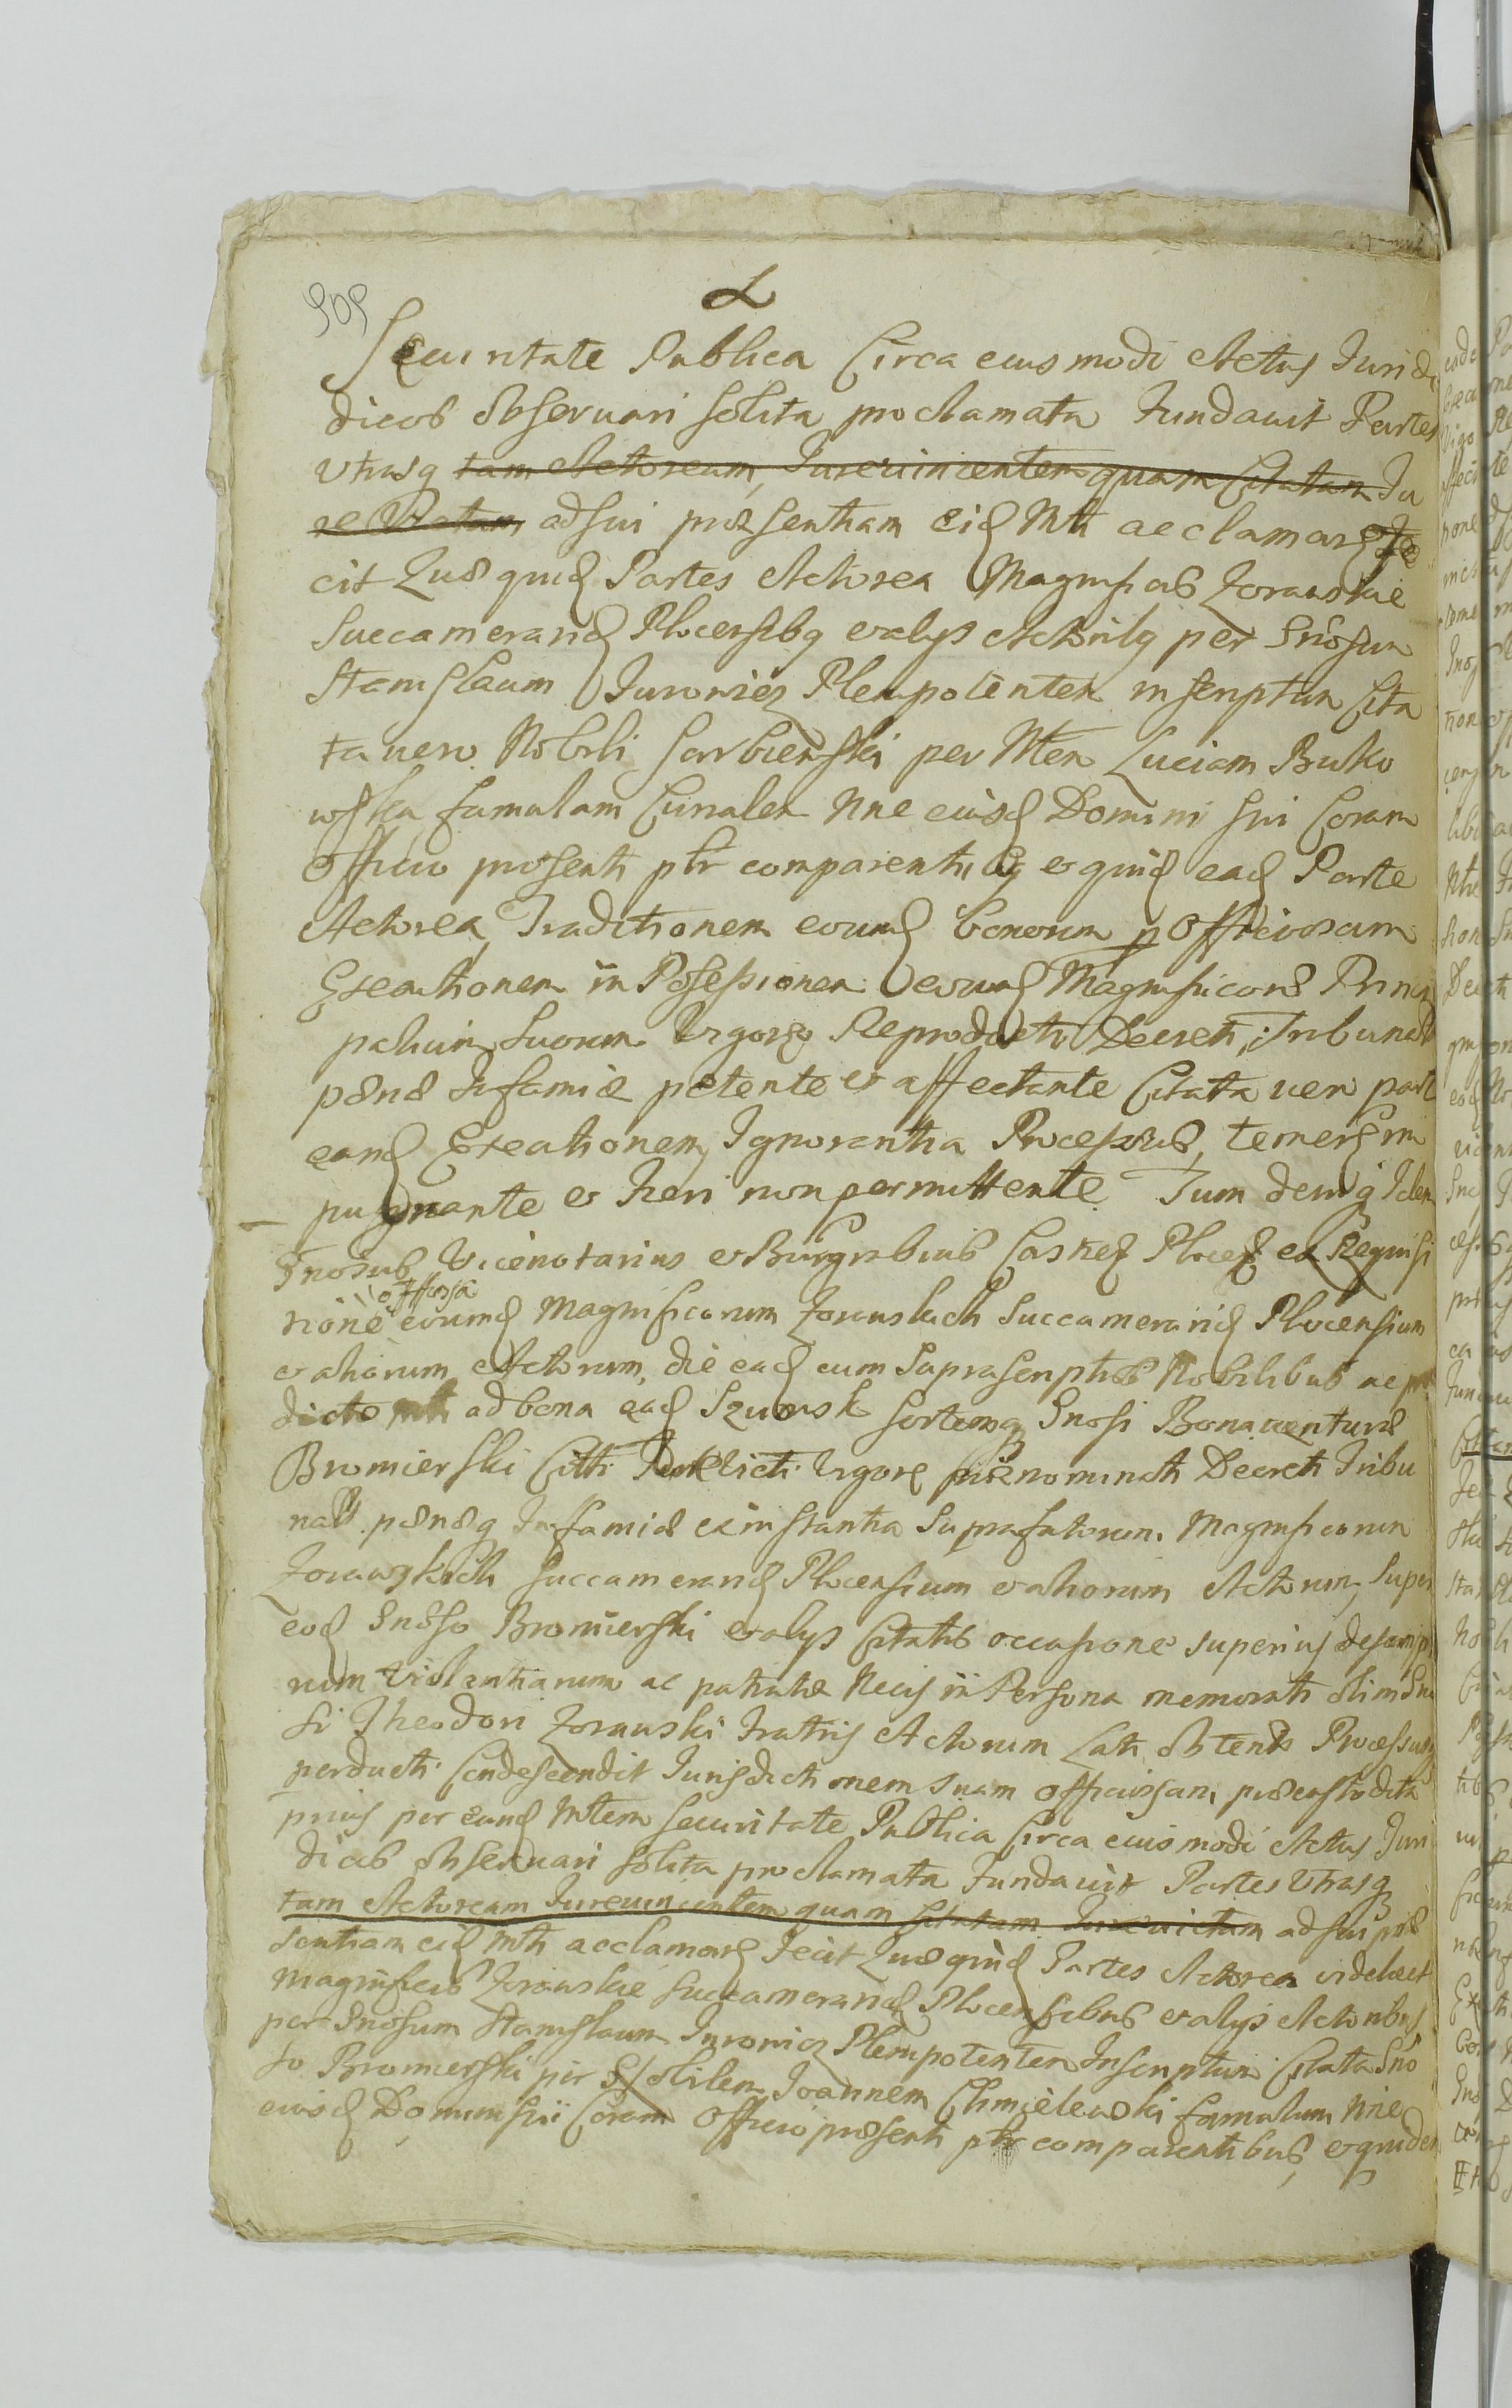 909
Securitate Publica Circa eiusmodi Actus Iuridi
dicos observari solita proclamata Fundavit Partes
utrasq tam Actoream, Iurevincentem quam Citatam Iu
re Victam ad sui præsentiam eid Mtli acclamare Fe
cit Quæ quid Partes Actorea Magnificis Zorawskie
Succamerarid Plocensibq et alys Actoribq per Gnosum
Stanislaum Iurowicz Plenipotentem inscriptum Cita
ta vero Nobili Sarbiewski per Mtem Luciam Buko
wska famulam Curialem Nne eiusd Domini sui Coram
Officio præsenti pltr comparentibq et quid ead Parte
Actorea Traditionem eorund bonorum p Officiosam
Exeutionem in Possessionem eorund Magnificorum Princi
palium Suorum Vigore Reproducti Decreti Tribunalis
pœnæ Infamiæ petente et affectante Citata vero parte
eand Exeutionem Ignorantia Processus, temere im
pugnante et fieri non permittente Tum deniq Idem
Gnosus Vicenotarius et Burgrabius Castren Plocen ex Requisi
tione officiosa eorund Magnificorum Zorawskich Succamerarid Plocensium
et aliorum Actorum, die ead cum Suprascriptis Nobilibus ac præ
dicto mtli ad bona ead Szumsk sortemq Gnosi Bonaventuræ
Bromierski Citti Iurevicti Vigore prænominati Decreti Tribu
nalis pœnæq Infamiæ ex instantia Suprafatorum Magnificorum
Zorawskich Succamerarid Plocensium et aliorum Actorum, super
eod Gnoso Bromierski et alys Citatis occasione superius descripta
rum violentiarum ac patratæ Necis in Persona memorati olim Gno
si Theodori Zorawski Fratris Actorum Lati obtenti Processusq
perducti Condescendit Iurisdictionem suam Officiosam, præcustodita
prius per eund Mtem securitate Publica Circa eiusmodi Actus Iuri
dicis observari solita proclamata Fundavit Partes Utrasq
tam Actoream Iurevincentem quam Citatam Iurevictam ad sui præ
sentiam eid Mtli acclamare Fecit Quæ quid Partes Actorea videlicet
Magnificis Zorawskie Succamerarid Plocensibus et alys Actoribus
per Gnosum Stanislaum Iurowicz Plenipotentem Inscriptum Citata Gno
so Bromierski per Nobilem Ioannem Chmielewski famulum Nne
eiusd Domini sui Coram Officio præsenti pltr comparentibus, et quidem